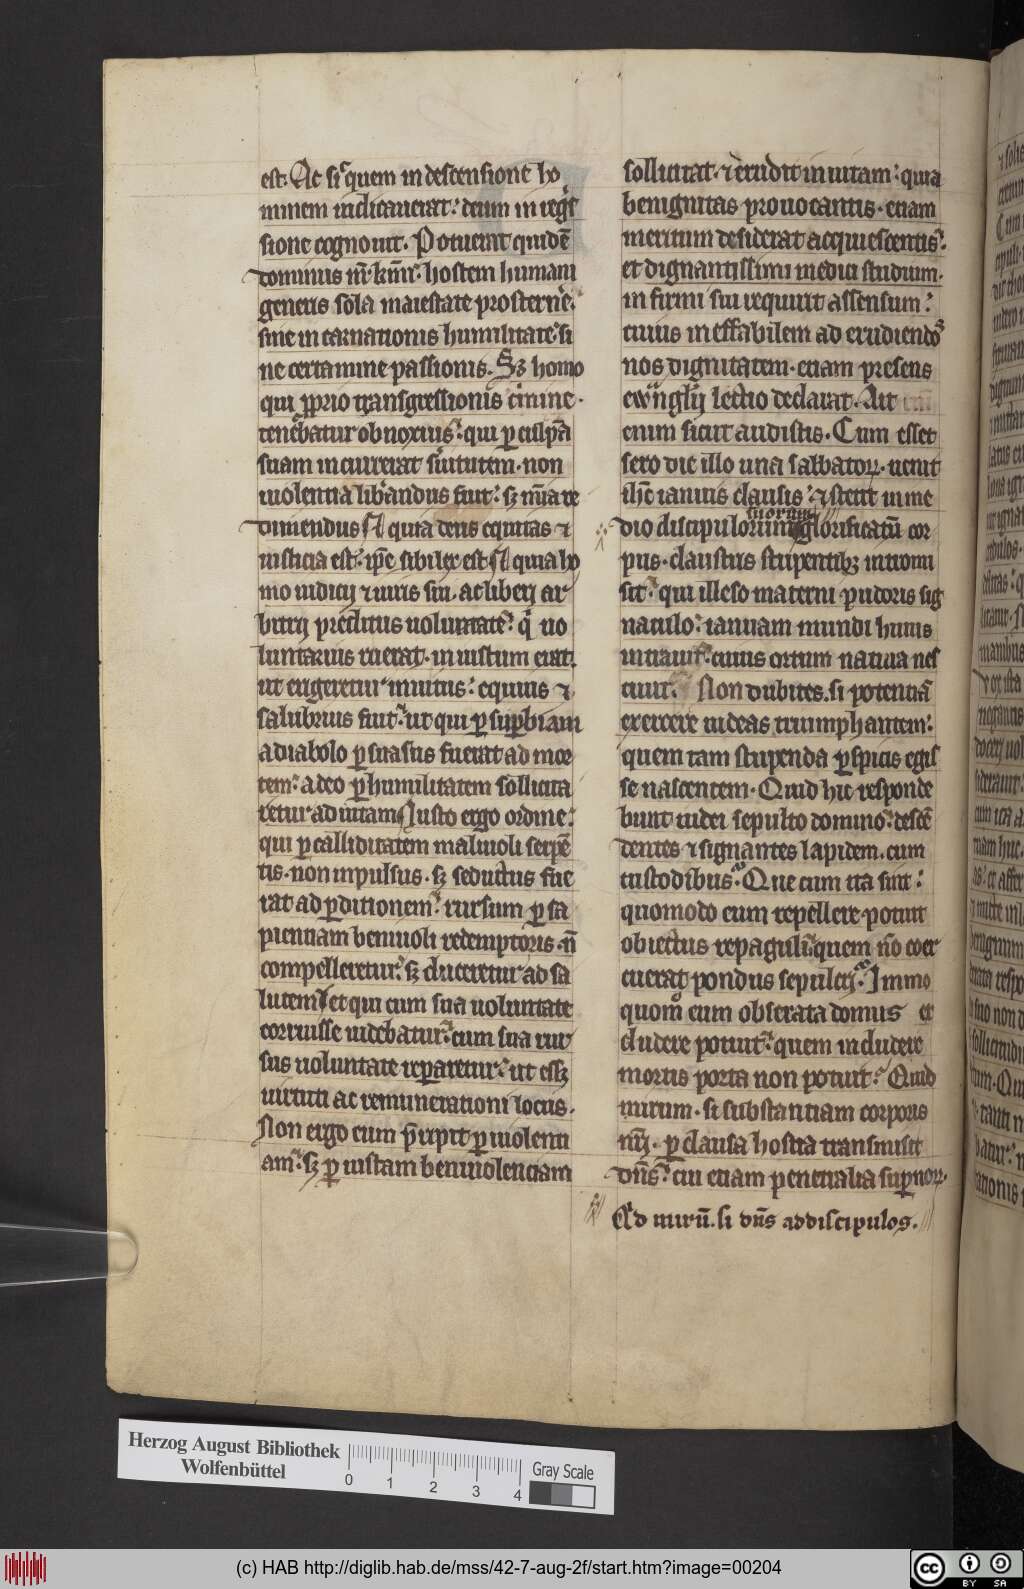 est. Ac si quem in descensione ho
minem iudicauerat: deum in reg̾s
sione cognouit. Potuerat quidē
dominus nr̄ karissimi hostem humani
generis sola maiestate prosternere.
sine incarnationis humilitate. si
ne certamine passionis. Sꝫ homo
qui ꝓprio transgressionis crimine.
tenebatur obnoxius: qui ꝑ culpā
suam incurrerat seruitutem. non
uiolentia liberandus fuit: sꝫ mīa re
dimendus. Et quia deus equitas ⁊
iusticia est: ipse sibi lex est. Et quia ho
mo iudicij ⁊ iuris sui. ac liberi ar
bitrij preditus uoluntate: qa uo
luntarius ruerat. in iustum erat.
ut erigeretur inuitus: equius ⁊
salubrius fuit: ut qui ꝑ suꝑbiam
a diabolo ꝑsuasus fuerat ad mor
tem: a deo ꝑ humilitatem sollicita
retur ad uitam. Iusto ergo ordine:
qui ꝑ calliditatem maliuoli serpē
tis. non inpulsus. sꝫ seductus fue
rat ad ꝑditionem: rursum ꝑ sa
pientiam beniuoli redemptoris. nō
compelleretur: sꝫ duceretur ad sa
lutem. et qui cum sua uoluntate
corruisse uidebatur: cum sua rur
sus uoluntate reꝑaretur: ut essꝫ
uirtuti ac remunerationi locus.
Non ergo eum p̄ripit ꝑ uiolenti
am: sꝫ ꝑ iustam beniuolentiam
sollicitat. ⁊ erudit inuitam: quia
benignitas prouocantis. etiam
meritum desiderat acquiescentis:
et dignantissimi medici studium.
infirmi sui requirit assensum:
cuius ineffabilem ad erudiendos
nos dignitatem. etiam presens
ewanglij lectio declarat. Ait
enim sicut audistis. Cum esset
sero die illo una sabbatoꝝ. uenit
ihc ianuis clausis: ⁊ stetit in me
suorum
dio discipulorum glorificatū cor
pus. claustris stupentibꝫ intromi
sit: qui illeso materni pudoris sig
naculo: ianuam mundi huius
intrauit: cuius ortum natura nes
ciuit. Non dubites. si potentiā
exercere uideas triumphantem:
quem tam stupenda ꝑspicis egis
se nascentem. Quid hic responde
bunt iudei sepulto domino: descē
dentes ⁊ signantes lapidem. cum
custodibus. Que cum ita sint:
quomodo eum repellere potuit
obiectus repaguli: quem nō coer
cuerat pondus sepulcri. Immo
quomō eum obserata domus et
cludere potuit: quem includere
mortis porta non potuit. Quid
mirum. si substantiam corporis
nr̄i. ꝑ clausa hostia transmisit
dn̄s: cui etiam penetralia suꝑnoꝝ.
Qd mirū. si dn̄s ad discipulos.
Herzog August Bibliothek
Wolfenbüttel
0 1 2 3 4
Gray Scale
(c) HAB http://diglib.hab.de/mss/42-7-aug-2f/start.htm?image=00204
cc BY SA